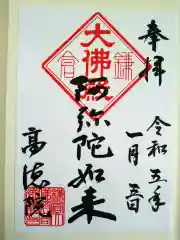 奉拝
令和五年
一月五日
大佛殿
鎌倉
阿弥陀如来
高徳院